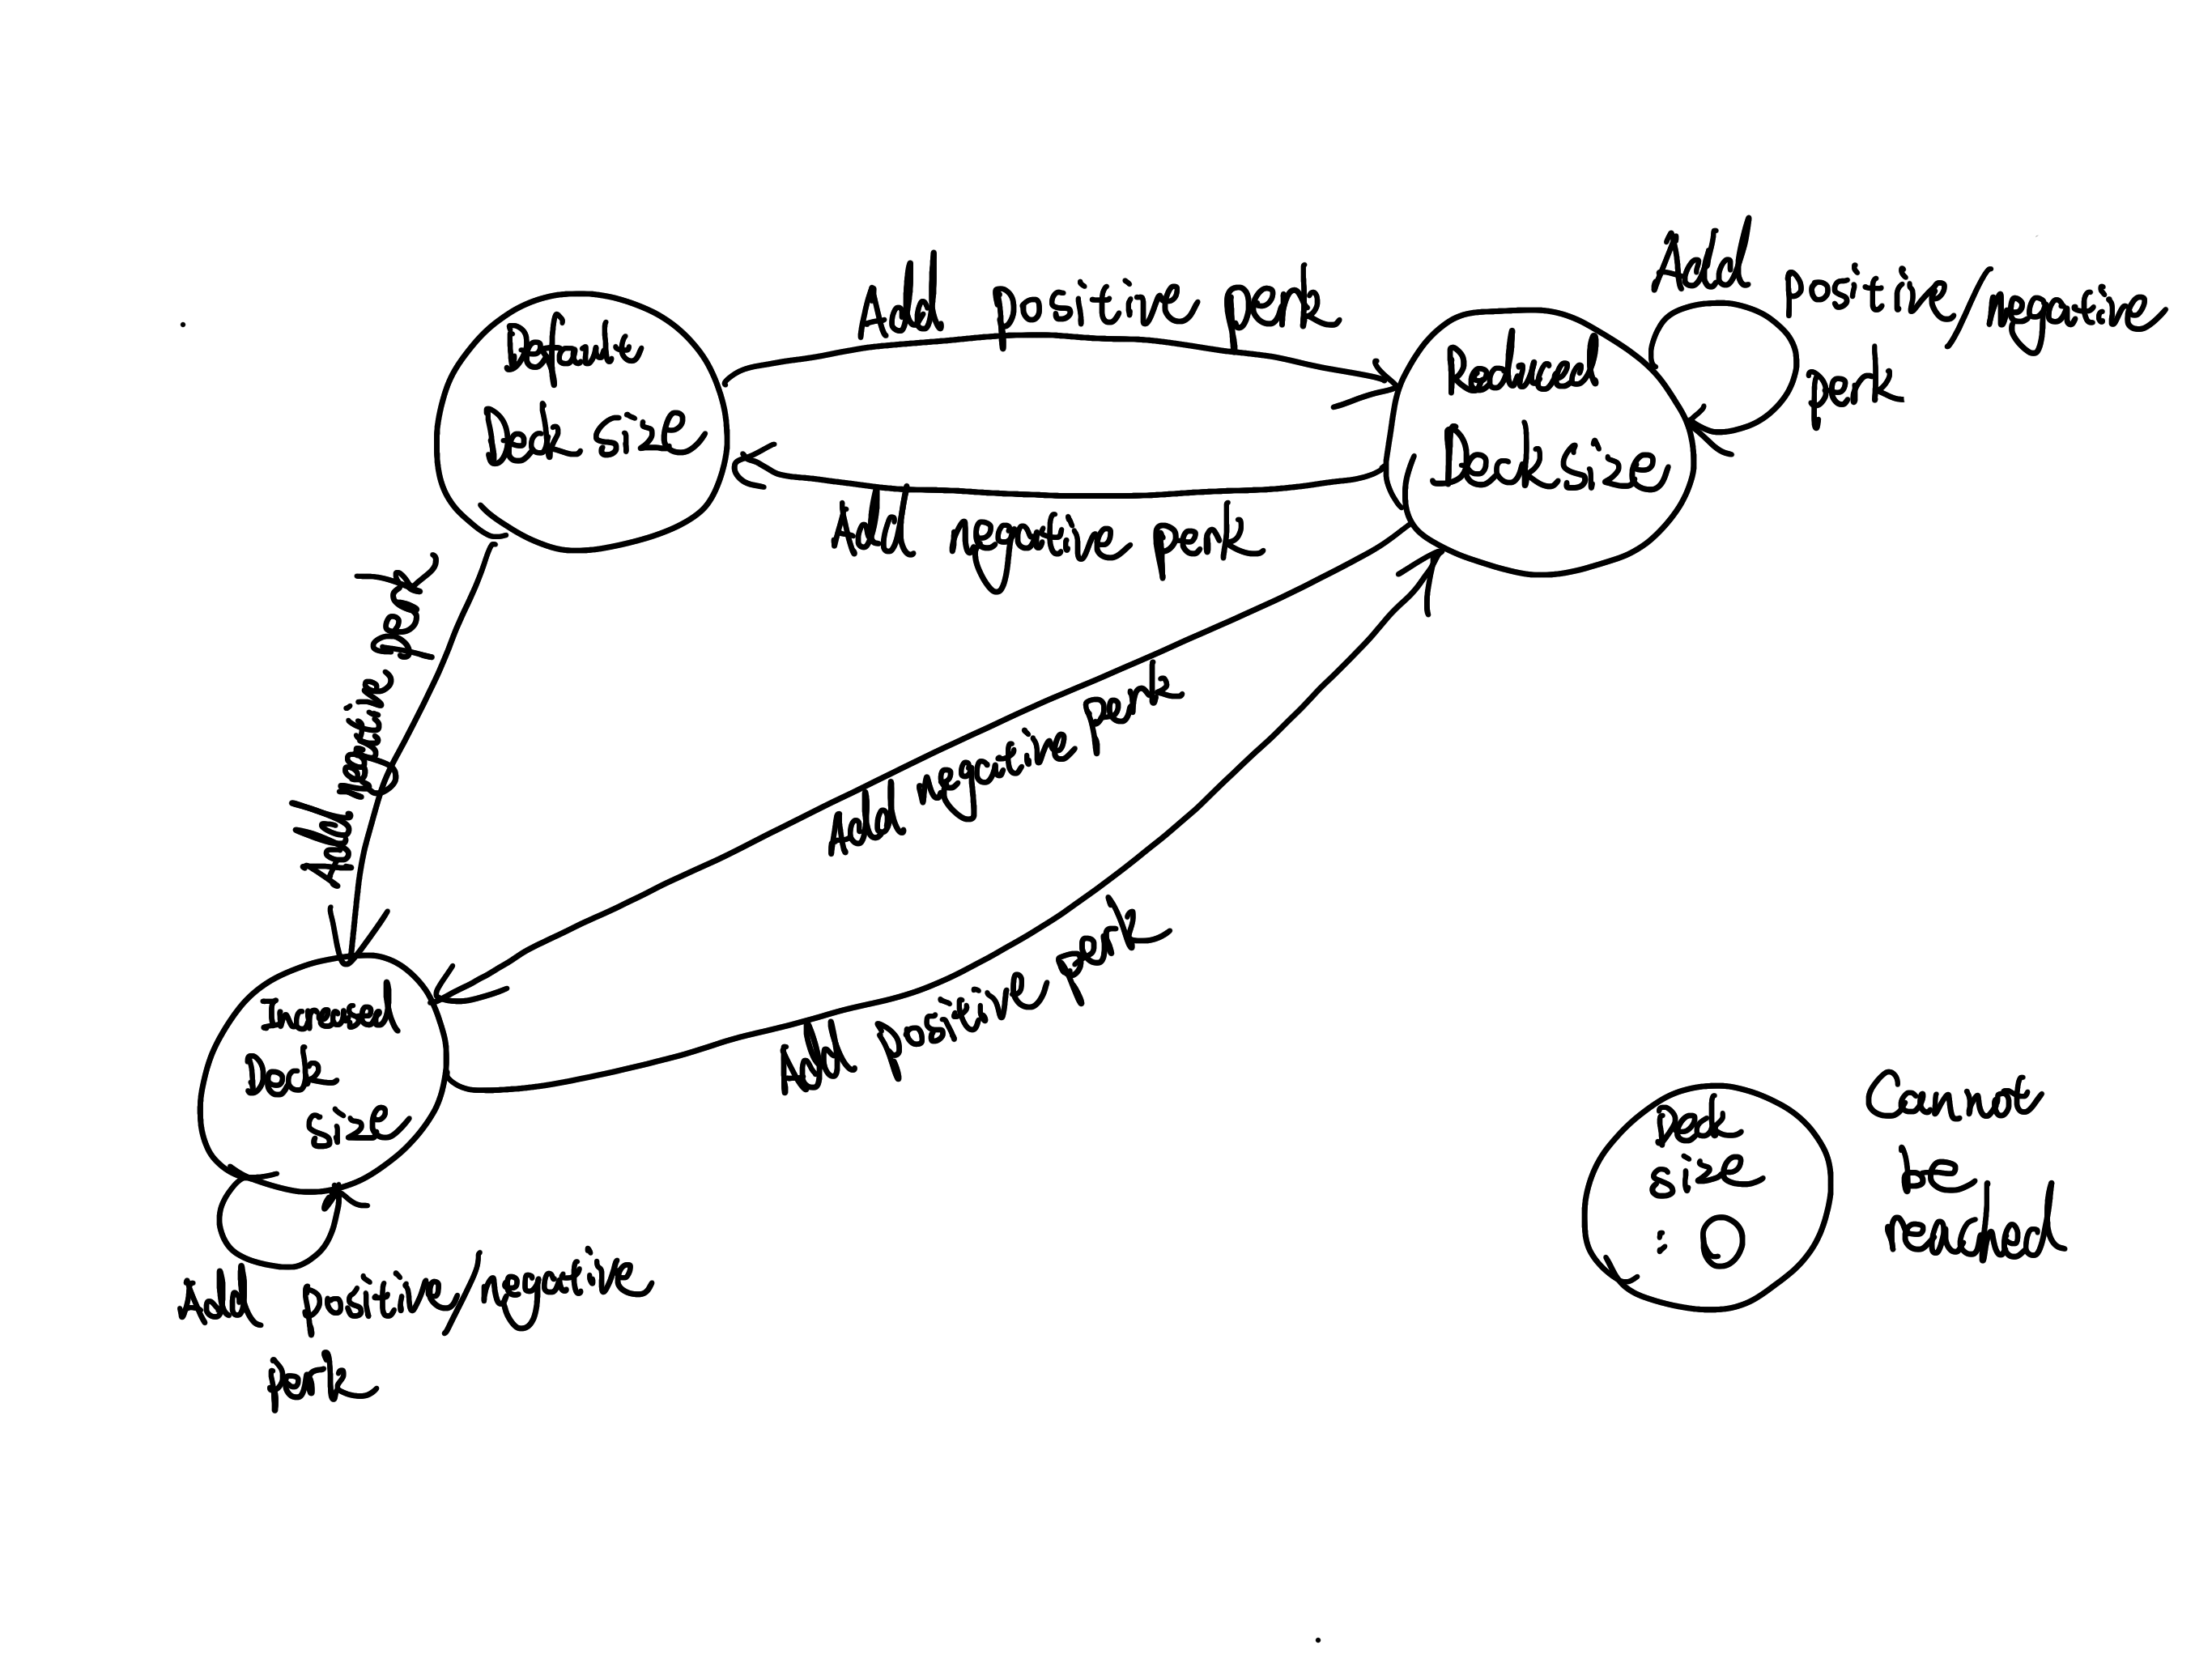 Add positive perk
Default
Deck size
Reduced
Deck size
Add
positive/negative
perk
Add negative perk
Add negative perk
Add negative perk
Add positive perk
Increased
Deck
size
Add positive/negative
perk
Deck
size
: 0
Cannot
be
reached